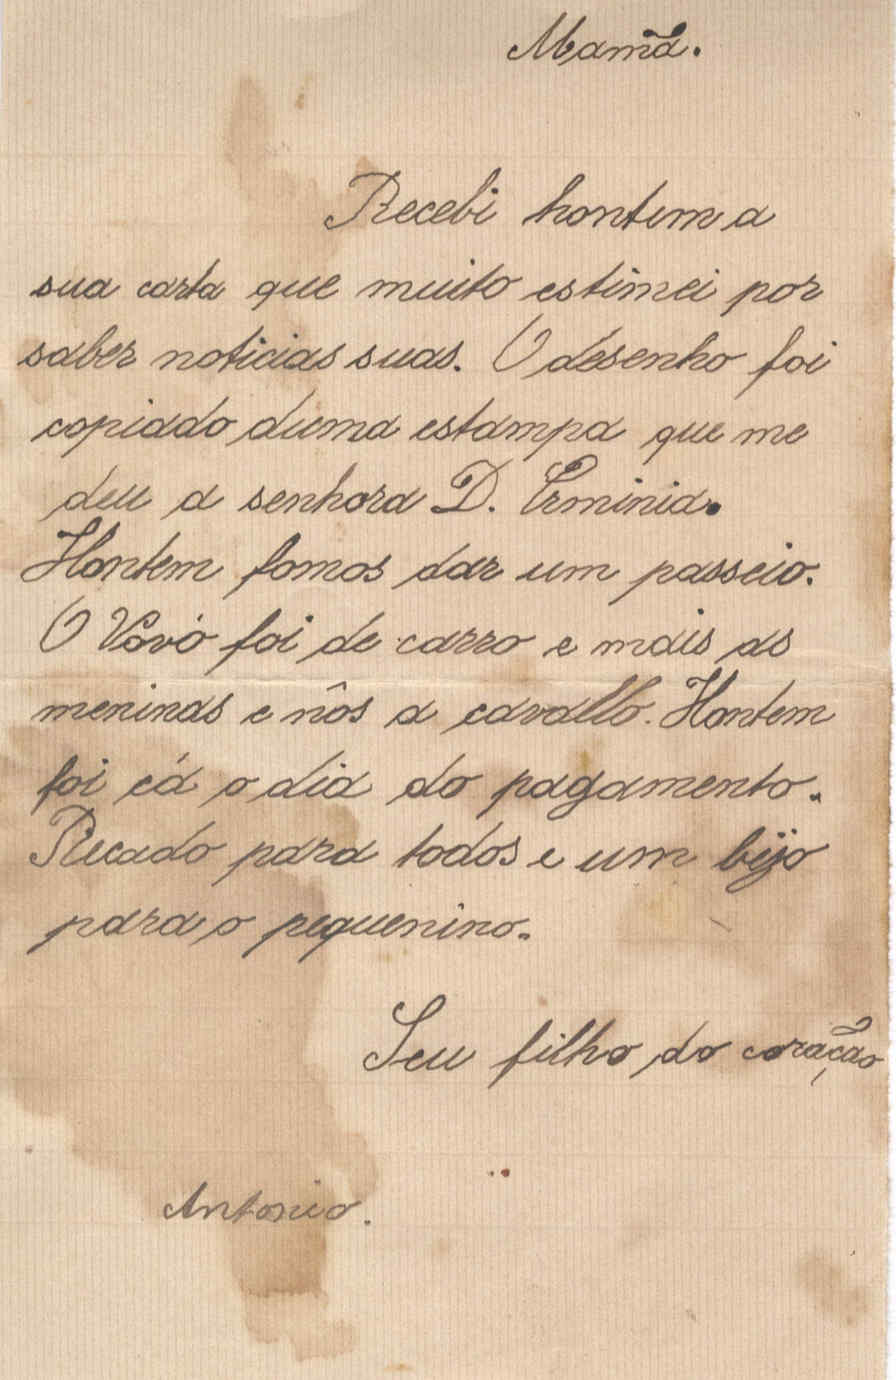 Mamã.
Recebi hontem a
sua carta que muito estimei por
saber noticias suas. O desenho foi
copiado duma estampa que me
deu a senhora D. Erminia.
Hontem fomos dar um passeio.
O Vovó foi de carro e mais as
meninas e nôs a cavallo. Hontem
foi cá o dia do pagamento.
Recado para todos e um bijo
para o pequenino.
Seu filho do coração
Antonio.